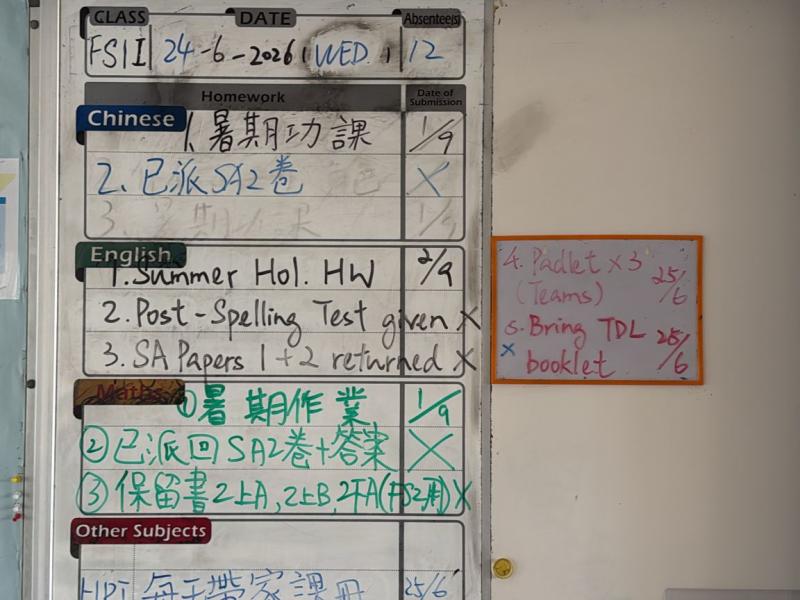 CLASS DATE Absentee(s)
FS1I 24-6-2026 (WED.) 12
Homework Date of Submission
Chinese
1. 暑期功課 1/9
2. 已派SA2卷 X
3. 暑期功課 1/9
English
1. Summer Hol. HW 2/9
2. Post-Spelling Test given X
3. SA Papers 1+2 returned X
4. Padlet x 3 25/6
(Teams)
5. Bring TDL 25/6
X booklet
Maths
① 暑期作業 1/9
② 已派回SA2卷+答案 X
③ 保留書2上A, 2上B, 2下A(FS2用) X
Other Subjects
每天帶家課冊 25/6